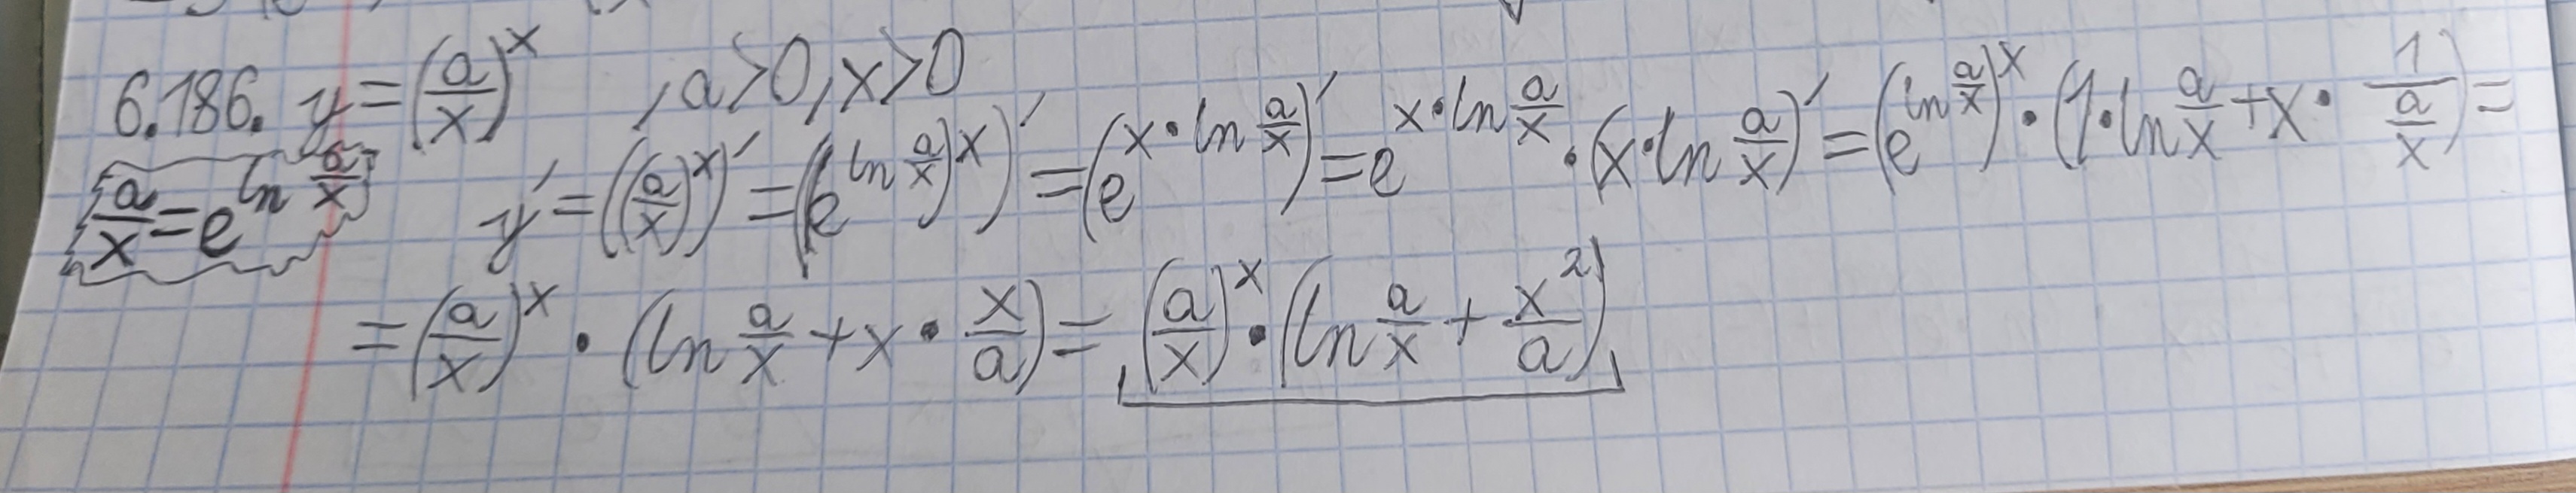 6.186. y = (a/x)^x , a>0, x>0
a/x = e^(ln a/x) y' = ((a/x)^x)' = ((e^(ln a/x))^x)' = (e^(x·ln a/x))' = e^(x·ln a/x) · (x·ln a/x)' = (e^(ln a/x))^x · (1·ln a/x + x · 1/(a/x)) =
= (a/x)^x · (ln a/x + x · x/a) = (a/x)^x · (ln a/x + x²/a)